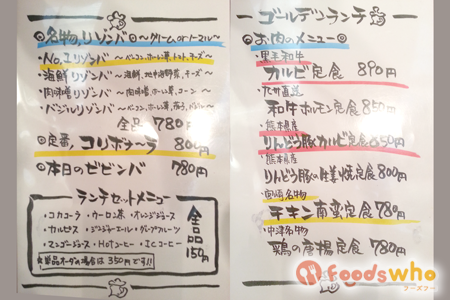 ◎名物、リゾンバ◎ 〜クリームorトマトソース〜
・No.1リゾンバ 〜ベーコン、ホーレン草、トマト、チーズ〜
・海鮮リゾンバ
・肉味噌リゾンバ
・バジルリゾンバ
全品 780円
◎定番、コリボナーラ 800円
◎本日のビビンバ 780円
ランチセットメニュー
・コカコーラ ・ウーロン茶 ・オレンジジュース
・カルピス ・ジンジャーエール ・グレープフルーツ
・マンゴージュース ・HOTコーヒー ・ICコーヒー
全品150円
☆単品オーダの場合は350円です!!
ゴールデンランチ
◎お肉のメニュー◎
・黒毛和牛
カルビ定食 890円
和牛ホルモン定食 850円
・熊本県産
りんどう豚カルビ定食 850円
・熊本県産
りんどう豚の生姜焼定食 800円
・宮崎名物
チキン南蛮定食 780円
・中津名物
鶏の唐揚定食 780円
foodswho
フーズフー